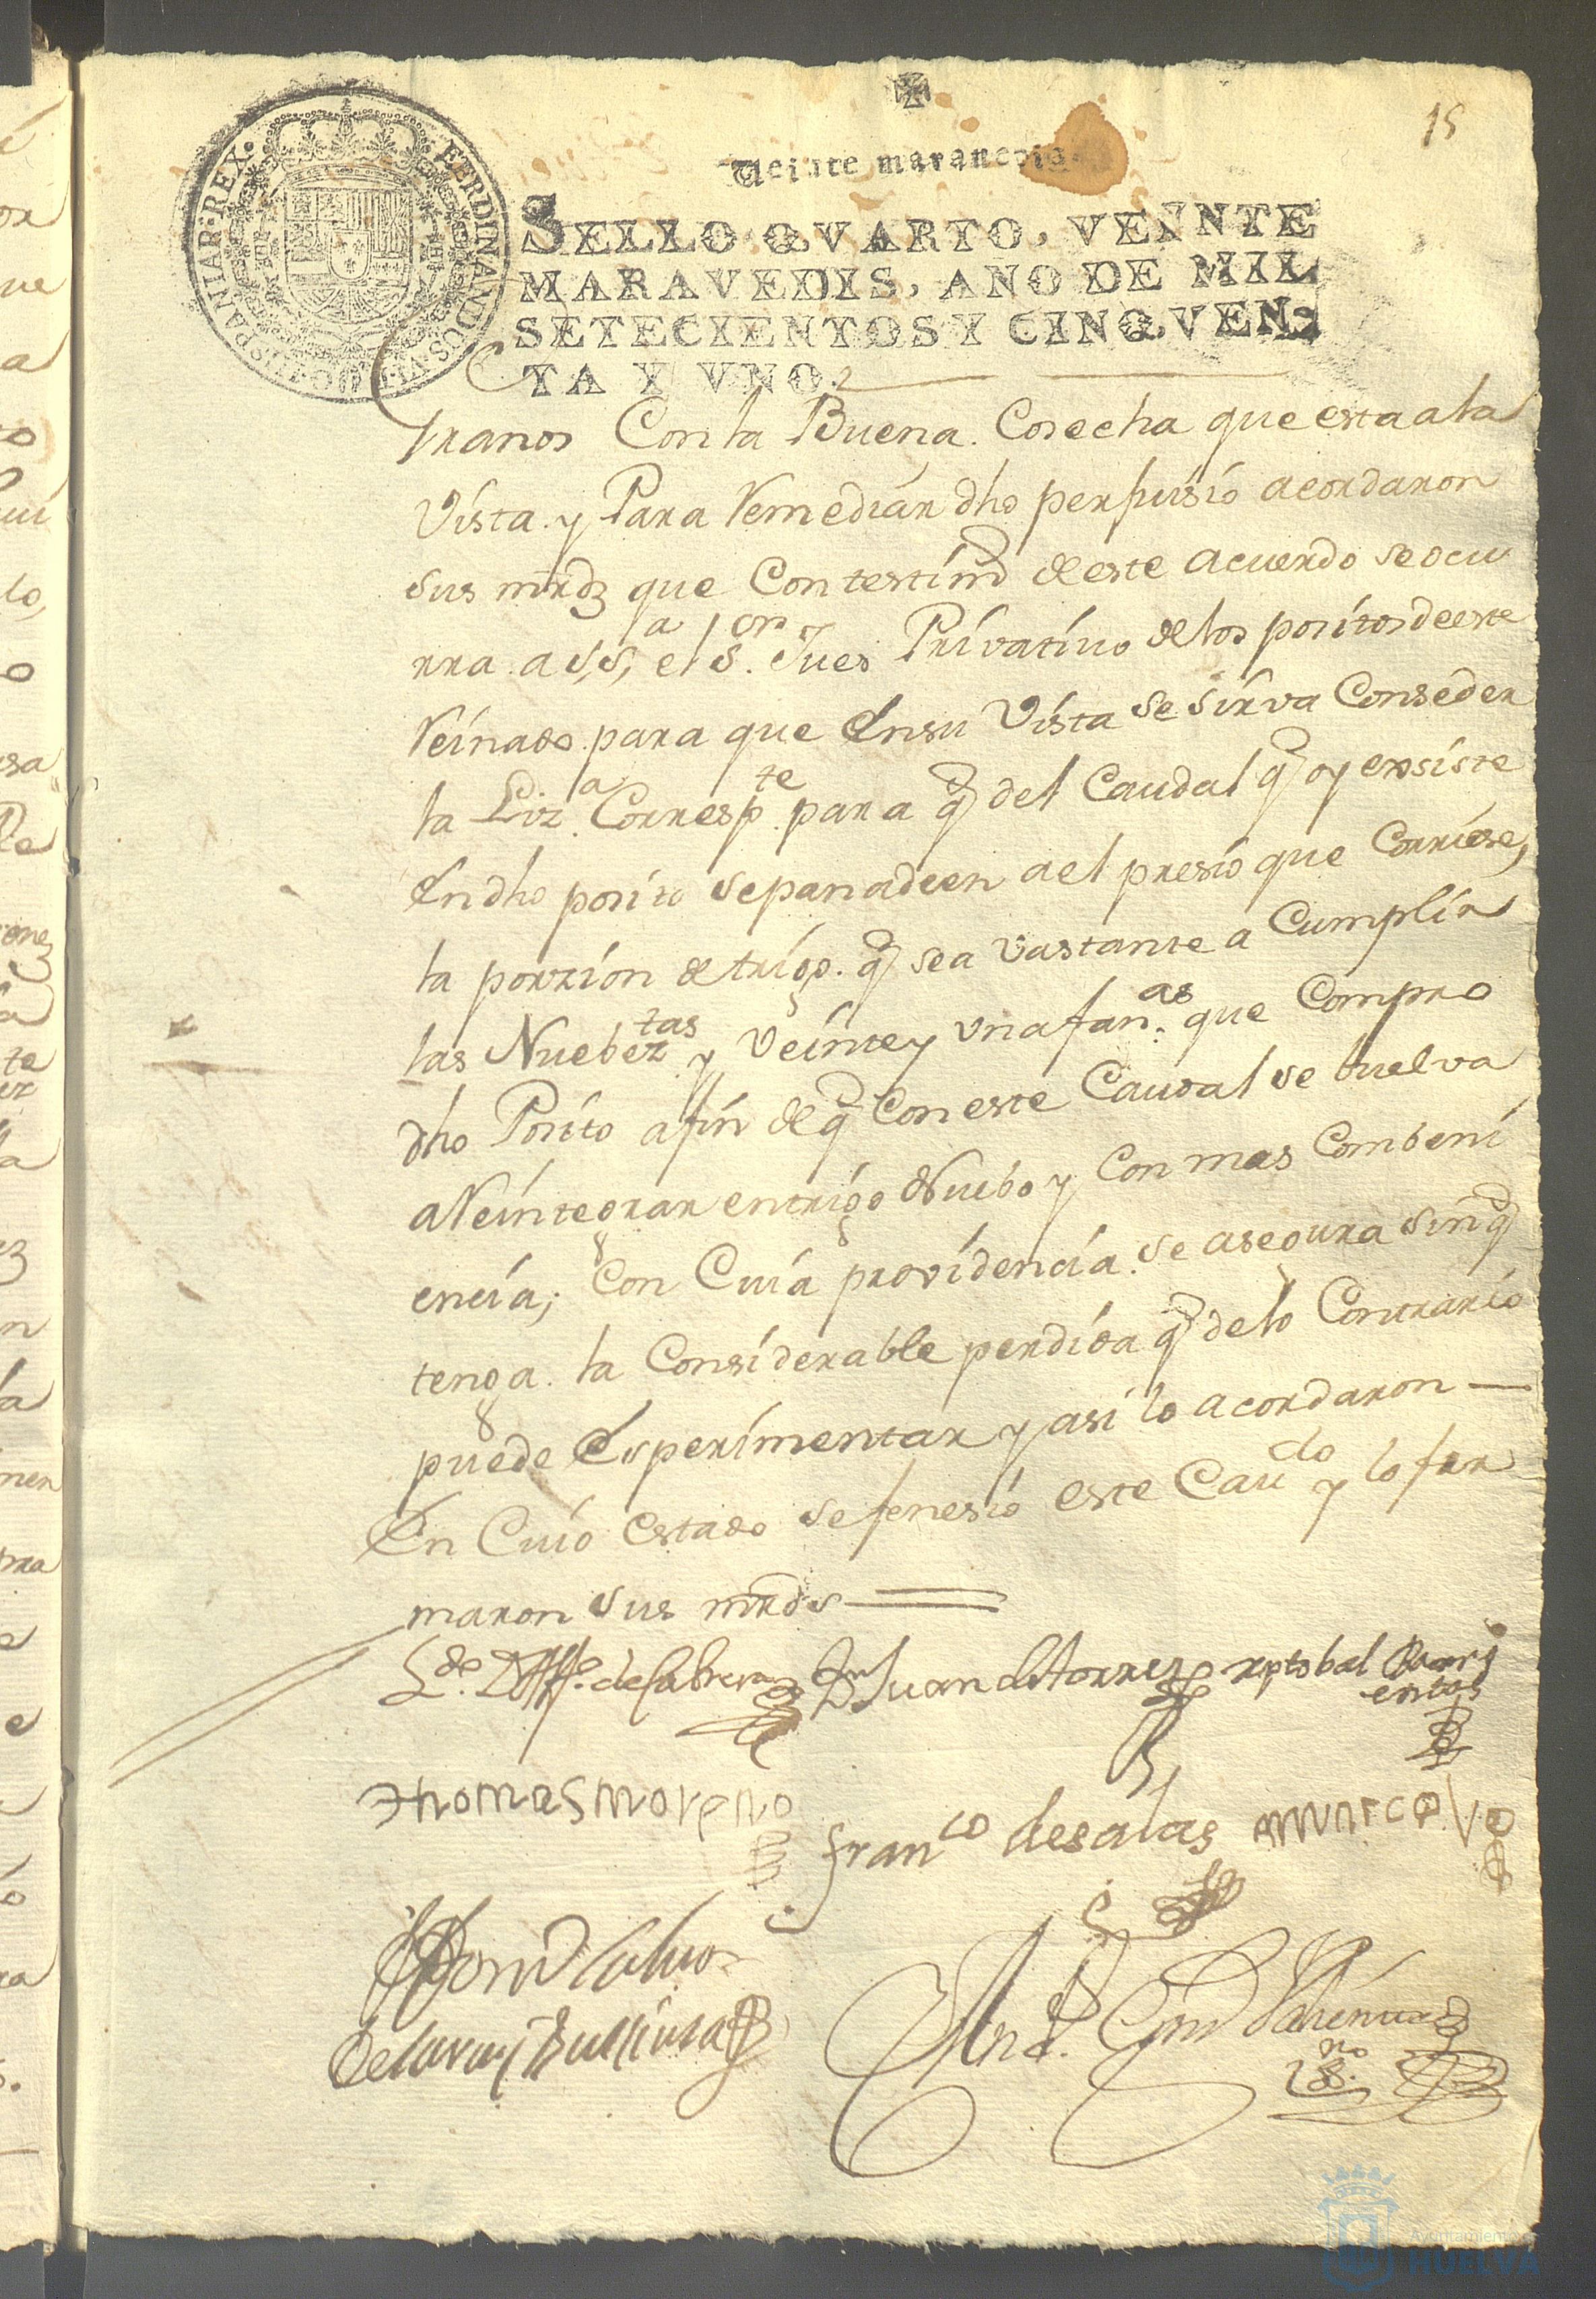 15
Veinte maravedis.
FERDINANDUS·VI·D·G·HISPANIAR·REX·
SELLO QVARTO, VEINTE
MARAVEDIS, AÑO DE MIL
SETECIENTOS Y CINQVEN-
TA Y VNO.
Granos Con la Buena Cosecha que esta a la
Vista y Para Remediar dho perjuisio acordaron
sus mrdz que Con testimo de este acuerdo se ocu
rra a S,Sa, el Sor. Jues Privativo de los positos de este
Reinado para que Ensu Vista se sirva Conseder
la Liza. Correspte. para q del Caudal q oy exsiste
En dho posito se panadeen a el presio que Corriese,
la porzion de trigo. q sea vastante a Cumplir
las Nuebeztas y veinte y una fanas. que Compro
dho Posito a fin de q Con este Caudal se buelva
a Reintegrar en trigo Nuebo y Con mas Combeni
encia; Con Cuia providencia se asegura sin q
tenga la Considerable perdida q de lo Contrario
puede Esperimentar y asi lo acordaron —
En Cuio estado se fenesio este Cavdo y lo fir
maron sus mrds
Ldo. D Alfo. de Cabrera Dn Juan de torres xptobal Barri
entos
thomas moreno
franco de salas